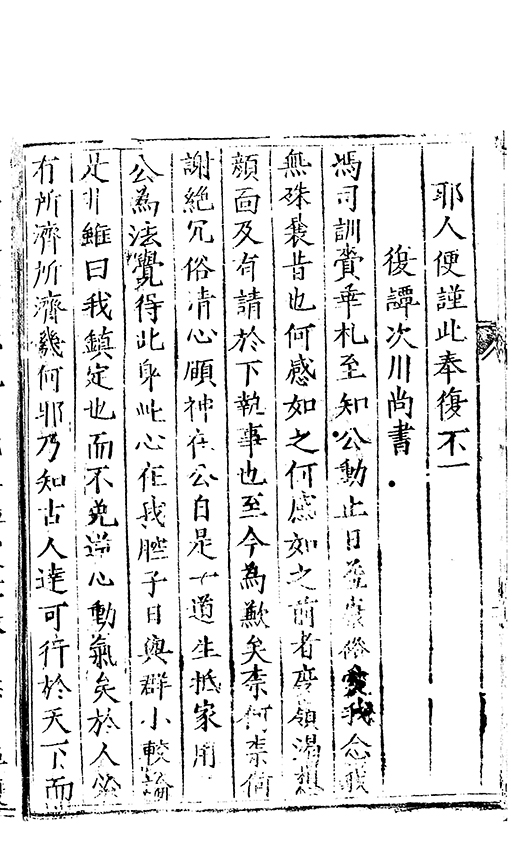 耶人便謹此奉復不一
復譚次川尚書
馮司訓賫垂札至知公動止日飛康裕愛我念我
無殊曩昔也何感如之何感如之前者席領渴想
顔面及有請於下執事也至今為歉矣柰何柰何
謝絶冗俗清心頤神在公自是一道生抵家用
公為法覺得此身此心在我腔子日與群小較論
是非雖曰我鎮定也而不免逆心動氣矣於人必
有所濟所濟幾何耶乃知古人達可行於天下而